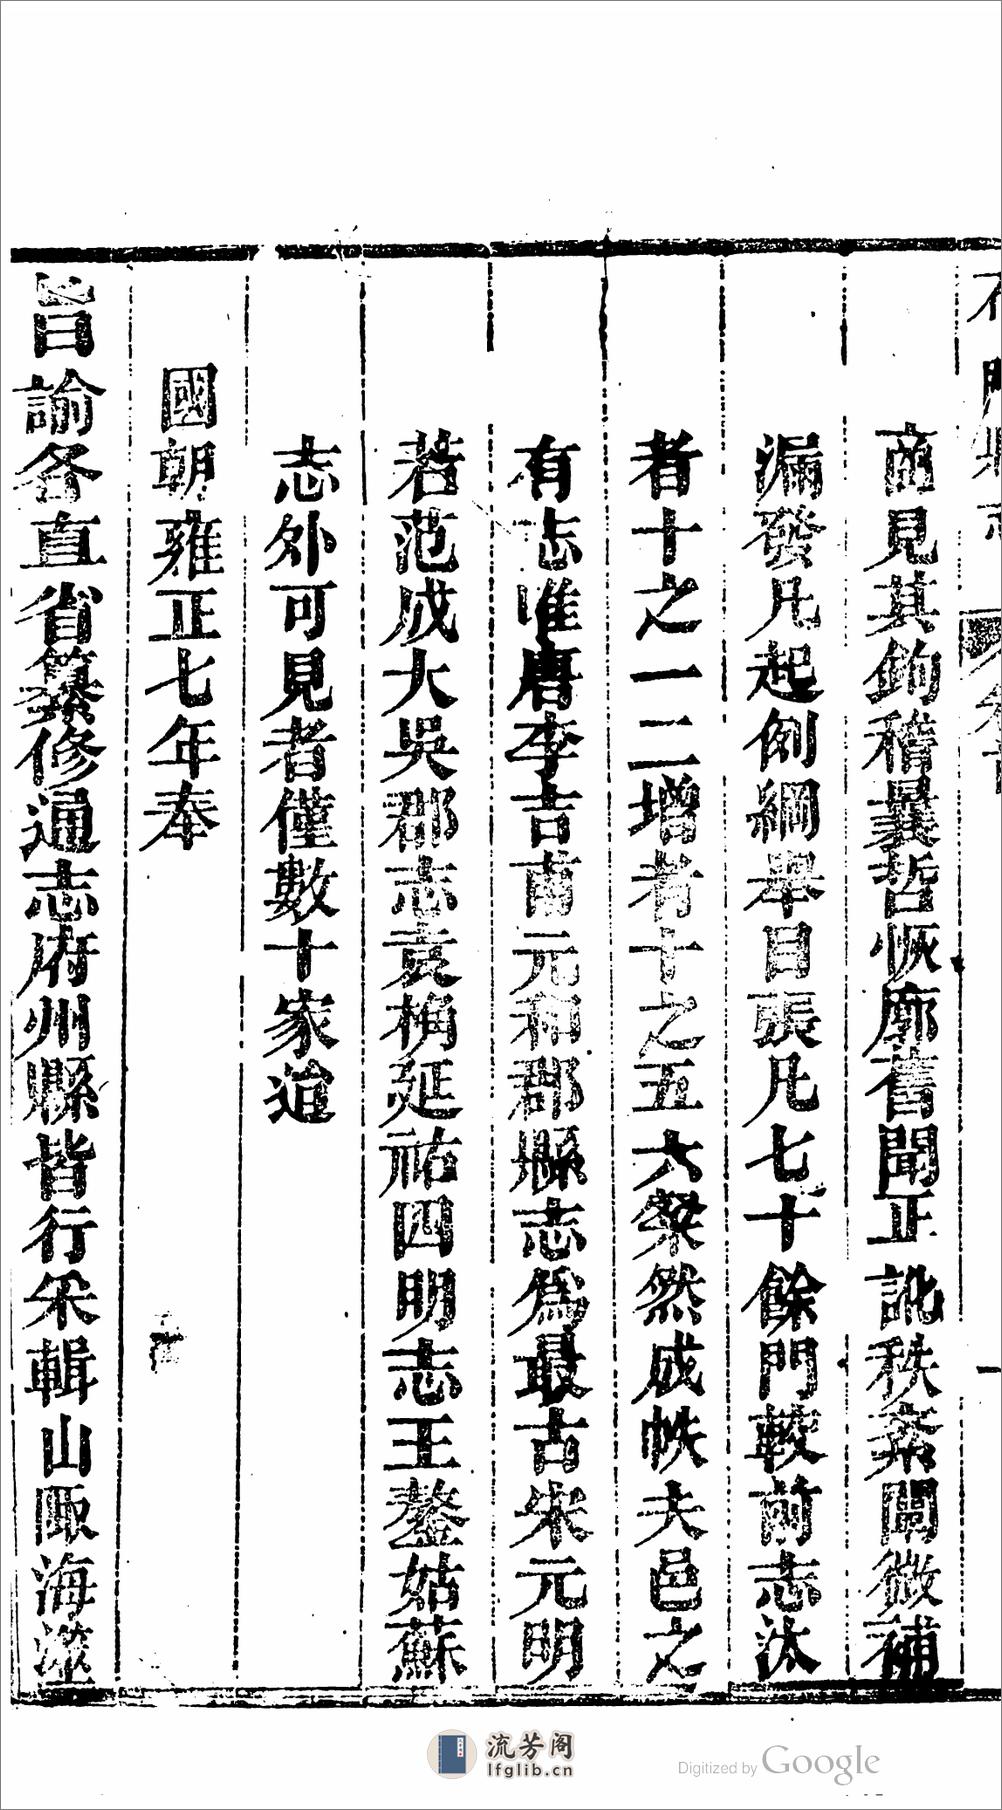 商見其鉤稽曩哲恢廓舊聞正訛秩紊闡微補
漏發凡起例綱舉目張凡七十餘門較前志汰
者十之一二增者十之五六粲然成帙夫邑之
有志唯唐李吉甫元和郡縣志爲最古宋元明
若范成大吳郡志袁桷延祐四明志王鏊姑蘇
志外可見者僅數十家迨
國朝雍正七年奉
旨諭各直省纂修通志府州縣皆行采輯山陬海澨
流芳阁
lfglib.cn
Digitized by Google